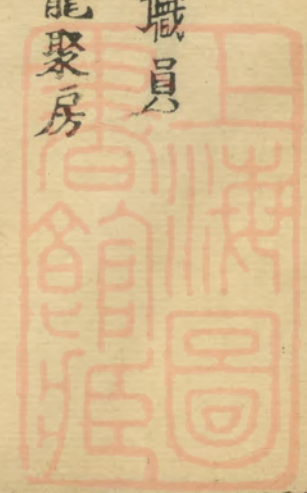 職員
聚房
上海圖
書館藏